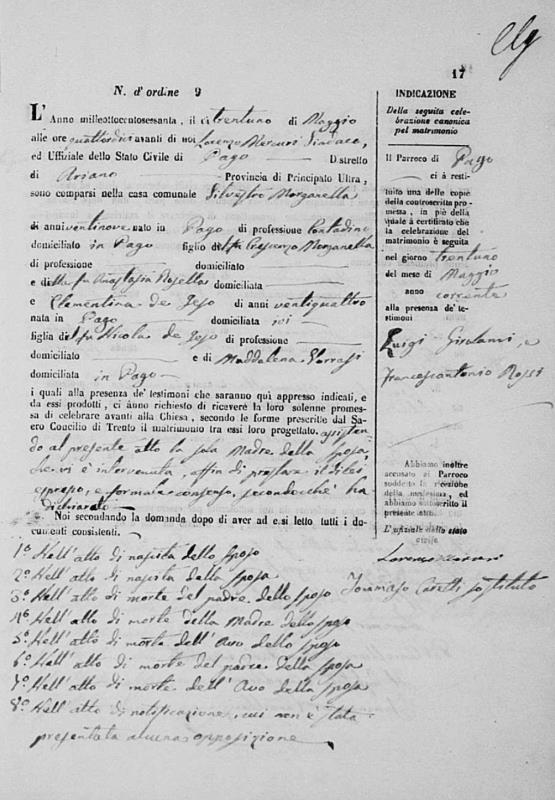 17
N. d'ordine 9
L'Anno milleottocentosessanta, il dì trentuno di Maggio
alle ore quattordici avanti di noi Lorenzo Mercuri Sindaco,
ed Uffiziale dello Stato Civile di Pago Distretto
di Ariano Provincia di Principato Ultra,
sono comparsi nella casa comunale Silvestro Morganella
di anni ventinove nato in Pago di professione Contadino
domiciliato in Pago figlio del fu Morganella
di professione domiciliato
e della fu Anastasia Rosella domiciliata
e Clementina de Jeso di anni ventiquattro
nata in Pago domiciliata ivi
figlia del fu Nicola de Jeso di professione
domiciliato e di Maddalena
domiciliata in Pago
i quali alla presenza de' testimoni che saranno quì appresso indicati, e
da essi prodotti, ci ànno richiesto di ricevere la loro solenne promes-
sa di celebrare avanti alla Chiesa, secondo le forme prescritte dal Sa-
cro Concilio di Trento il matrimonio tra essi loro progettato. assisten
do al presente atto la sola Madre della sposa,
che vi è intervenuta, affin di prestare il di lei
espresso, e formale consenso, secondocchè ha
dichiarato
Noi secondando la domanda dopo di aver ad essi letto tutti i do-
cumenti consistenti.
1º Nell'atto di nascita dello sposo
2º Nell'atto di nascita della sposa
3º Nell'atto di morte del padre dello sposo
4º Nell'atto di morte della Madre dello sposo
5º Nell'atto di morte dell'Avo dello sposo
6º Nell'atto di morte del padre della sposa
7º Nell'atto di morte dell'Avo della sposa
8º Nell'atto di notificazione, cui non è stata
presentata alcuna opposizione
INDICAZIONE
Della seguita cele-
brazione canonica
pel matrimonio
Il Parroco di Pago
ci à resti-
tuito una delle copie
della controscritta pro-
messa, in piè della
quale à certificato che
la celebrazione del
matrimonio è seguita
nel giorno trentuno
del mese di Maggio
anno corrente
alla presenza de' te-
stimoni
Luigi Girolami e
Francescantonio Rossi
Abbiamo inoltre
accusato al Parroco
suddetto la ricezione
della medesima, ed
abbiamo sottoscritto il
presente atto.
L'ufiziale dello stato
civile
Lorenzo Mercuri
Tommaso Caretti sostituto